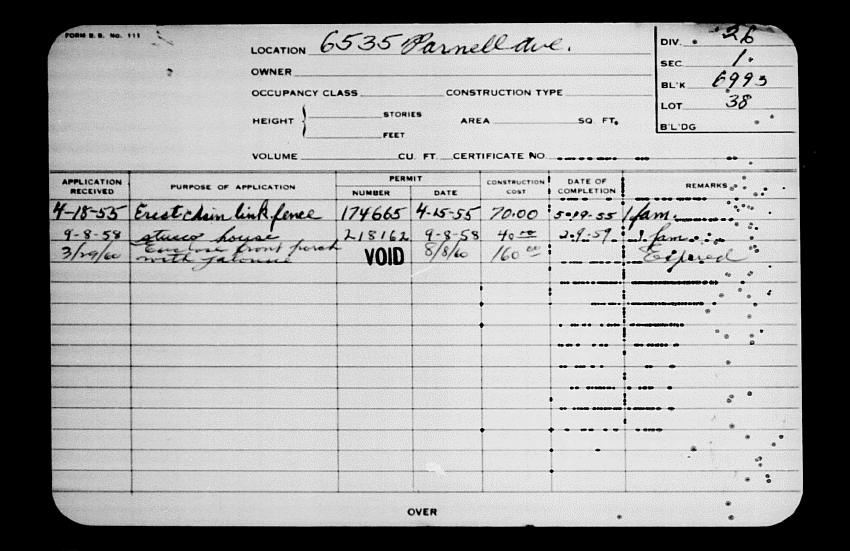 FORM B.B. No. 111
LOCATION 6535 Parnell Ave.
OWNER
OCCUPANCY CLASS CONSTRUCTION TYPE
HEIGHT STORIES AREA SQ FT.
FEET
VOLUME CU. FT. CERTIFICATE NO
DIV. 26
SEC 1.
BL'K 6993
LOT 38
B'L'DG
APPLICATION RECEIVED PURPOSE OF APPLICATION PERMIT NUMBER DATE CONSTRUCTION COST DATE OF COMPLETION REMARKS
4-18-55 Erect chain link fence 174665 4-15-55 70.00 5-19-55 1 fam.
9-8-58 stucco house 218162 9-8-58 40 00 2-9-59 1 fam.
3/29/60 Enclose front porch VOID 8/8/60 160 00 Expired
with
OVER